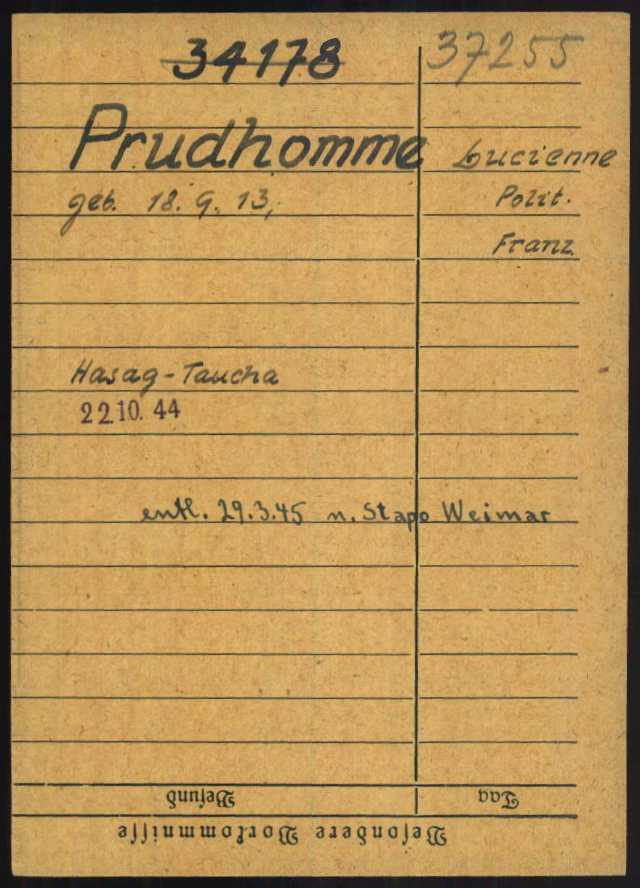 34178 37255
Prudhomme Lucienne
geb. 18. 9. 13, Polit.
Franz.
Hasag-Taucha
22.10. 44
entl. 29.3.45 n. Stapo Weimar
Befund Tag
Besondere Vorkommnisse